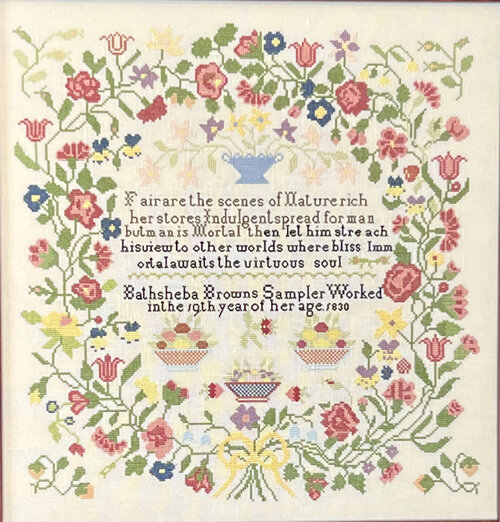 Fair are the scenes of Nature rich
her stores Indulgent spread for man
but man is Mortal then let him stre ach
his view to other worlds where bliss Imm
ortal awaits the virtuous soul
Bathsheba Browns Sampler Worked
in the 19th year of her age. 1830